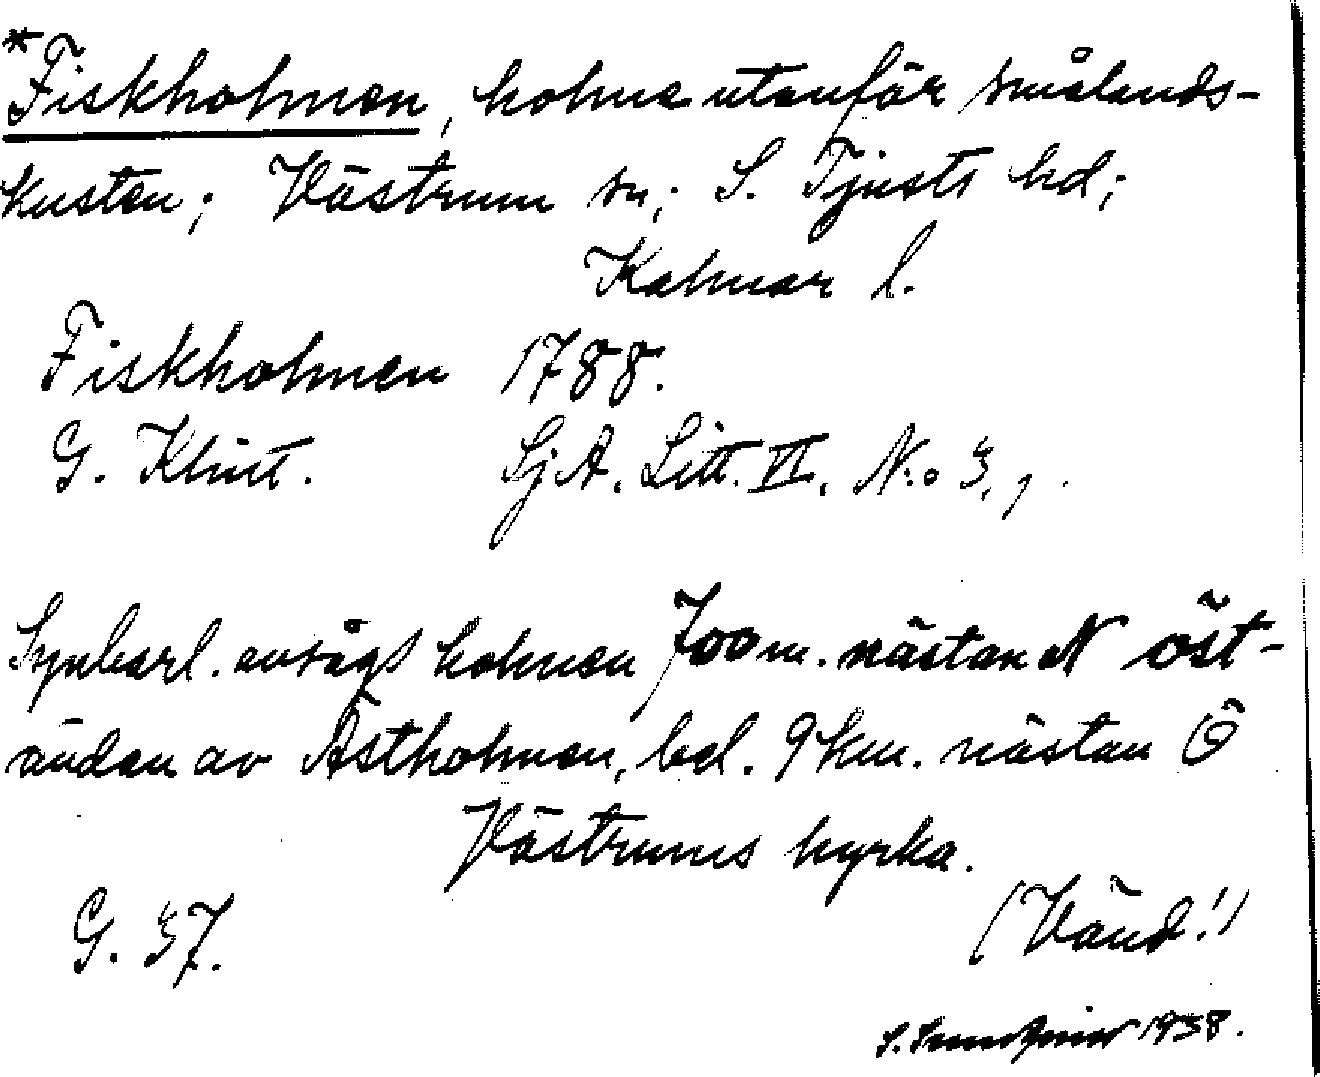 *Fiskholmen, holme utanför smålands-
kusten; Västrum sn; S. Tjusts hd;
Kalmar l.
Fiskholmen 1788.
G. Klint. SjA. Litt. VI. N:o 3,
Synbarl. avsågs holmen 700 m. nästan N öst-
änden av Ästholmen, bel. 9 km. nästan Ö
Västrums kyrka.
G. 37. (Vänd!)
S. 1938.